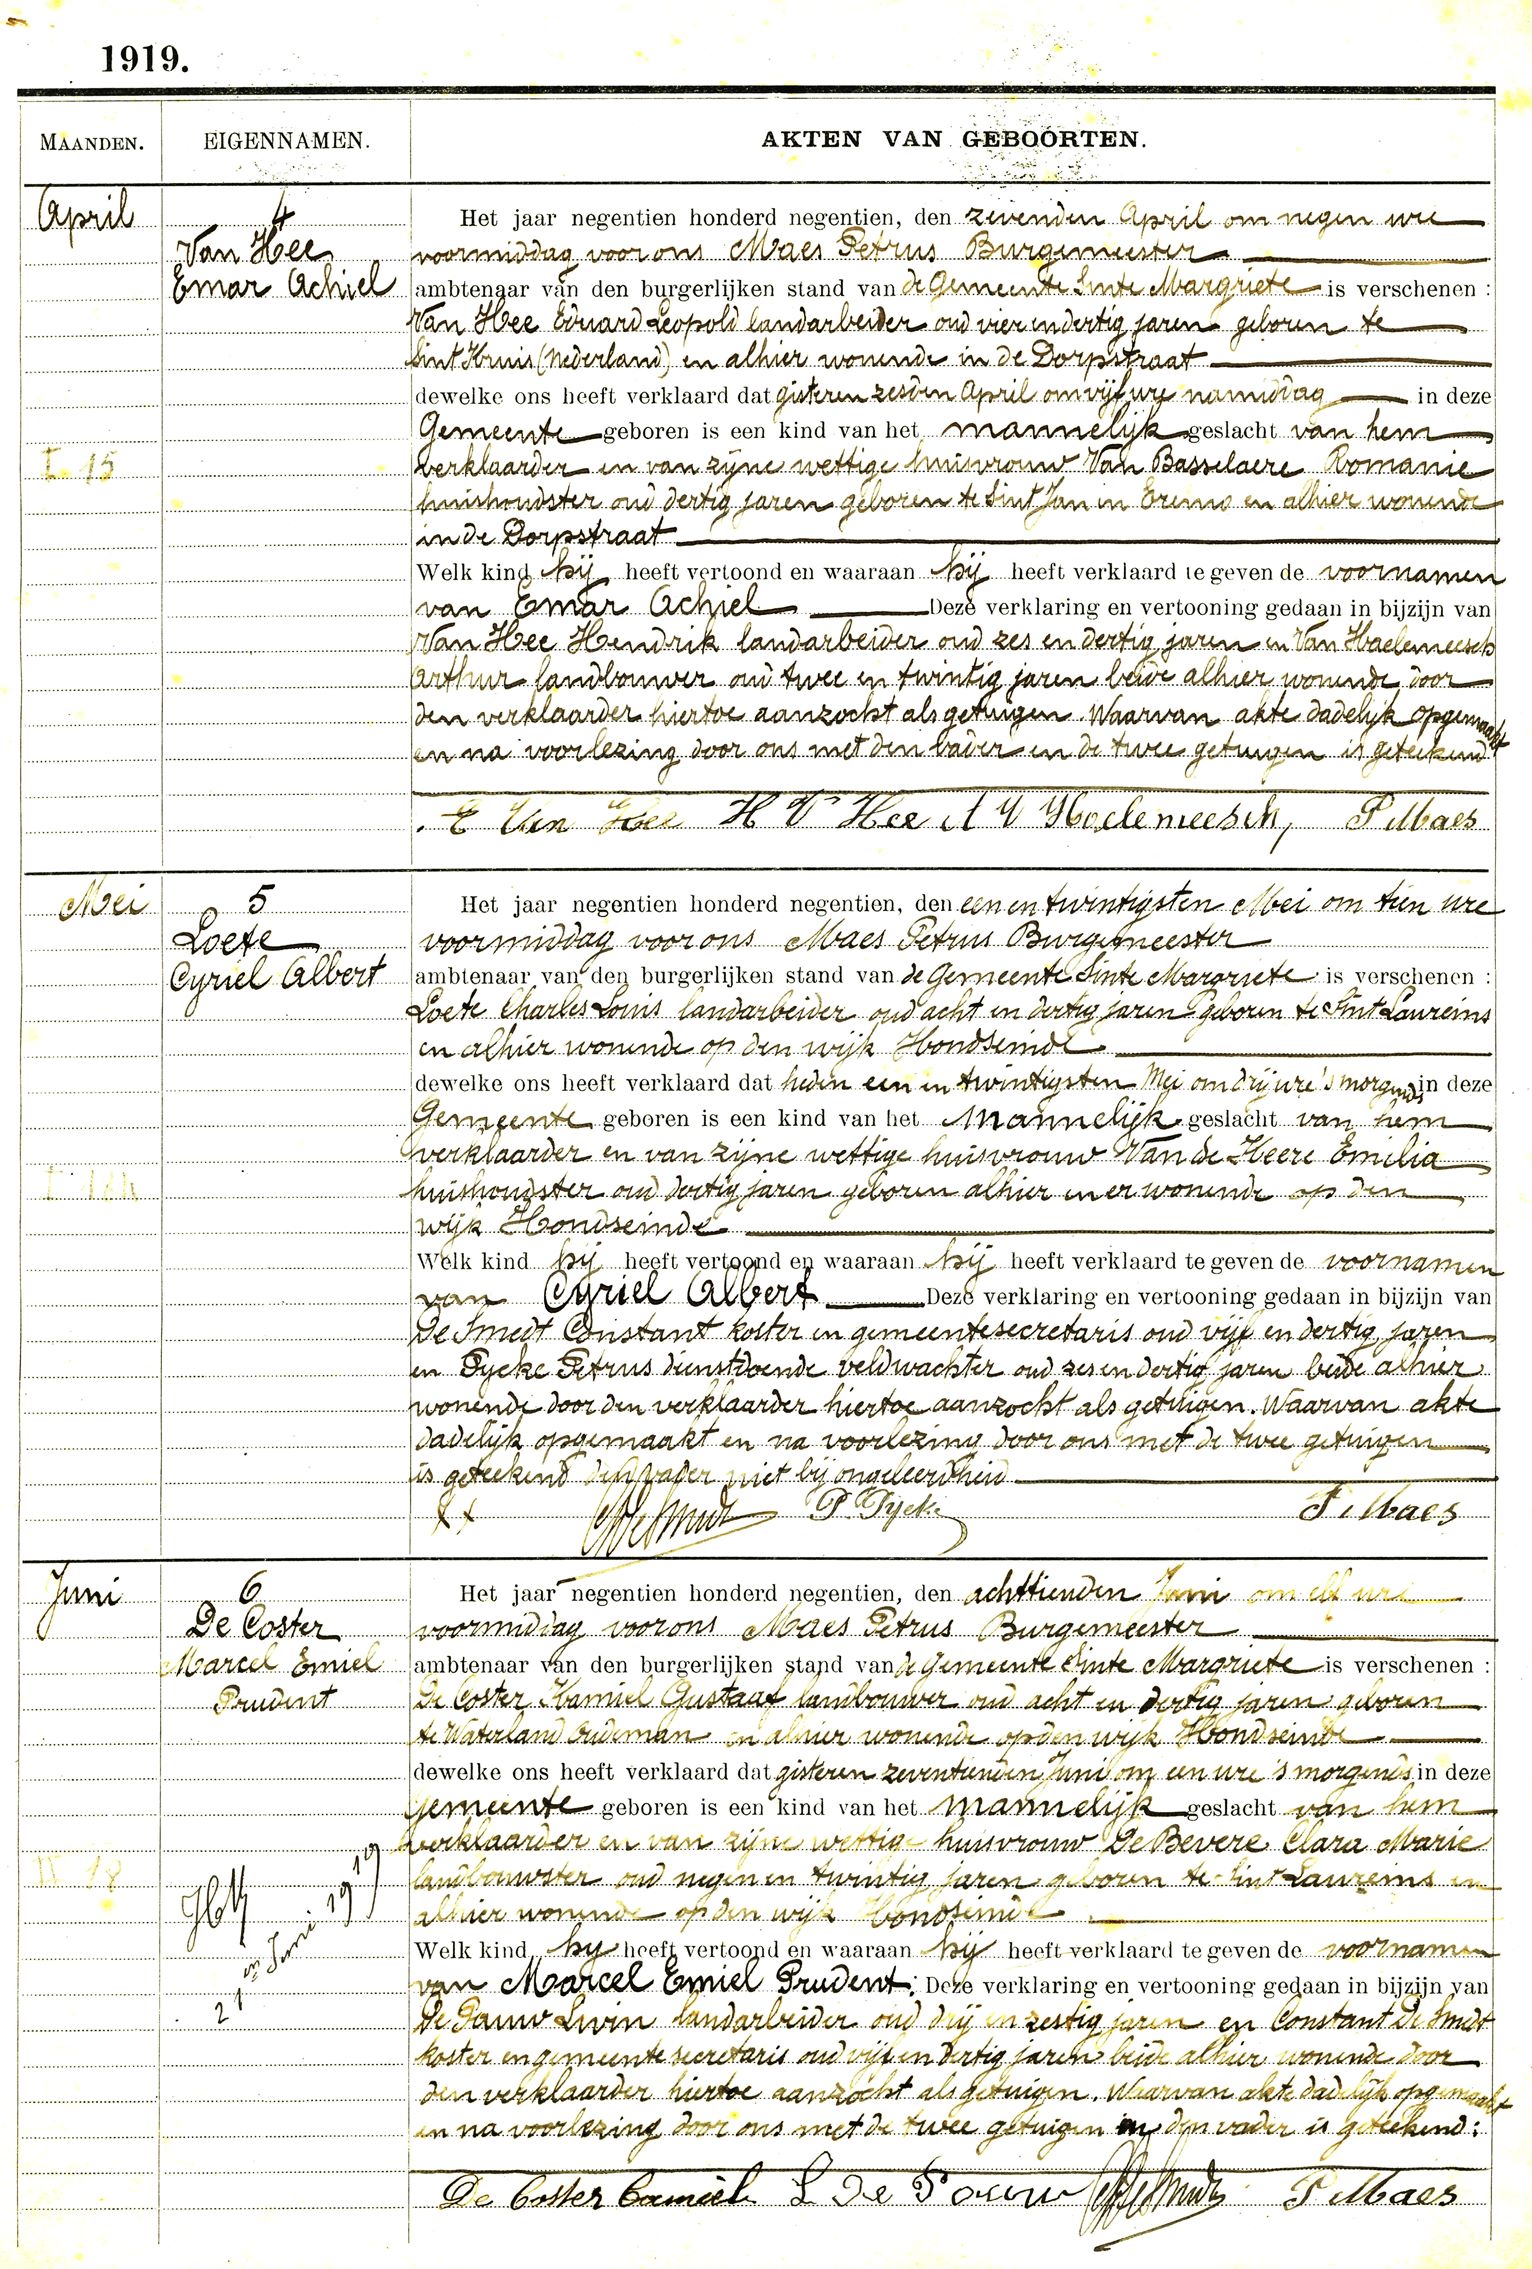 1919.
MAANDEN.
EIGENNAMEN.
AKTEN VAN GEBOORTEN.
April
4
Van Hee
Emar Achiel
I 15
Het jaar negentien honderd negentien, den zevenden April om negen ure
voormiddag voor ons Maes Petrus Burgemeester
ambtenaar van den burgerlijken stand van de Gemeente Sinte Margriete is verschenen :
Van Hee Eduard Leopold landarbeider oud vier en dertig jaren geboren te
Sint Kruis (Nederland) en alhier wonende in de Dorpstraat
dewelke ons heeft verklaard dat gisteren zesden April om vijf ure namiddag in deze
Gemeente geboren is een kind van het mannelijk geslacht van hem
verklaarder en van zijne wettige huisvrouw Van Basselaere Romanie
huishoudster oud dertig jaren geboren te Sint Jan in Eremo en alhier wonende
in de Dorpstraat
Welk kind hij heeft vertoond en waaraan hij heeft verklaard te geven de voornamen
van Emar Achiel Deze verklaring en vertooning gedaan in bijzijn van
Van Hee Hendrik landarbeider oud zes en dertig jaren en Van Haelemeesch
Arthur landbouwer oud twee en twintig jaren beide alhier wonende door
den verklaarder hiertoe aanzocht als getuigen. Waarvan akte dadelijk opgemaakt
en na voorlezing door ons met den vader en de twee getuigen is geteekend
E Van Hee H V Hee A V Haelemeesch, P Maes
Mei
5
Loete
Cyriel Albert
Het jaar negentien honderd negentien, den een en twintigsten Mei om tien ure
voormiddag voor ons Maes Petrus Burgemeester
ambtenaar van den burgerlijken stand van de Gemeente Sinte Margriete is verschenen :
Loete Charles Louis landarbeider oud acht en dertig jaren geboren te Sint Laureins
en alhier wonende op den wijk Hondseinde
dewelke ons heeft verklaard dat heden een en twintigsten Mei om drij ure 's morgends in deze
Gemeente geboren is een kind van het mannelijk geslacht van hem
verklaarder en van zijne wettige huisvrouw Van de Heere Emilia
huishoudster oud dertig jaren geboren alhier en er wonende op den
wijk Hondseinde
Welk kind hij heeft vertoond en waaraan hij heeft verklaard te geven de voornamen
van Cyriel Albert Deze verklaring en vertooning gedaan in bijzijn van
De Smedt Constant koster en gemeentesecretaris oud vijf en dertig jaren
en Pycke Petrus dienstdoende veldwachter oud zes en dertig jaren beide alhier
wonende door den verklaarder hiertoe aanzocht als getuigen. Waarvan akte
dadelijk opgemaakt en na voorlezing door ons met de twee getuigen
is geteekend den vader niet bij ongeleerdheid
CDeSmedt P. Pycke P. Maes
Juni
6
De Coster
Marcel Emiel
Prudent
IV 18
21 en Juni 1919
Het jaar negentien honderd negentien, den achttienden Juni om elf ure
voormiddag voor ons Maes Petrus Burgemeester
ambtenaar van den burgerlijken stand van de Gemeente Sinte Margriete is verschenen :
De Coster Kamiel Gustaaf landbouwer oud acht en dertig jaren geboren
te Waterland Oudeman en alhier wonende op den wijk Hondseinde
dewelke ons heeft verklaard dat gisteren zeventienden Juni om een ure 's morgends in deze
Gemeente geboren is een kind van het mannelijk geslacht van hem
verklaarder en van zijne wettige huisvrouw De Bevere Clara Marie
landbouwster oud negen en twintig jaren geboren te Sint Laureins en
alhier wonende op den wijk Hondseinde
Welk kind hy heeft vertoond en waaraan hij heeft verklaard te geven de voornamen
van Marcel Emiel Prudent. Deze verklaring en vertooning gedaan in bijzijn van
De Pauw Livin landarbeider oud drij en zestig jaren en Constant De Smedt
koster en gemeentesecretaris oud vijf en dertig jaren beide alhier wonende door
den verklaarder hiertoe aanzocht als getuigen. Waarvan akte dadelijk opgemaakt
en na voorlezing door ons met de twee getuigen en den vader is geteekend:
De Coster Camiel L De Pauw CDeSmedt P Maes